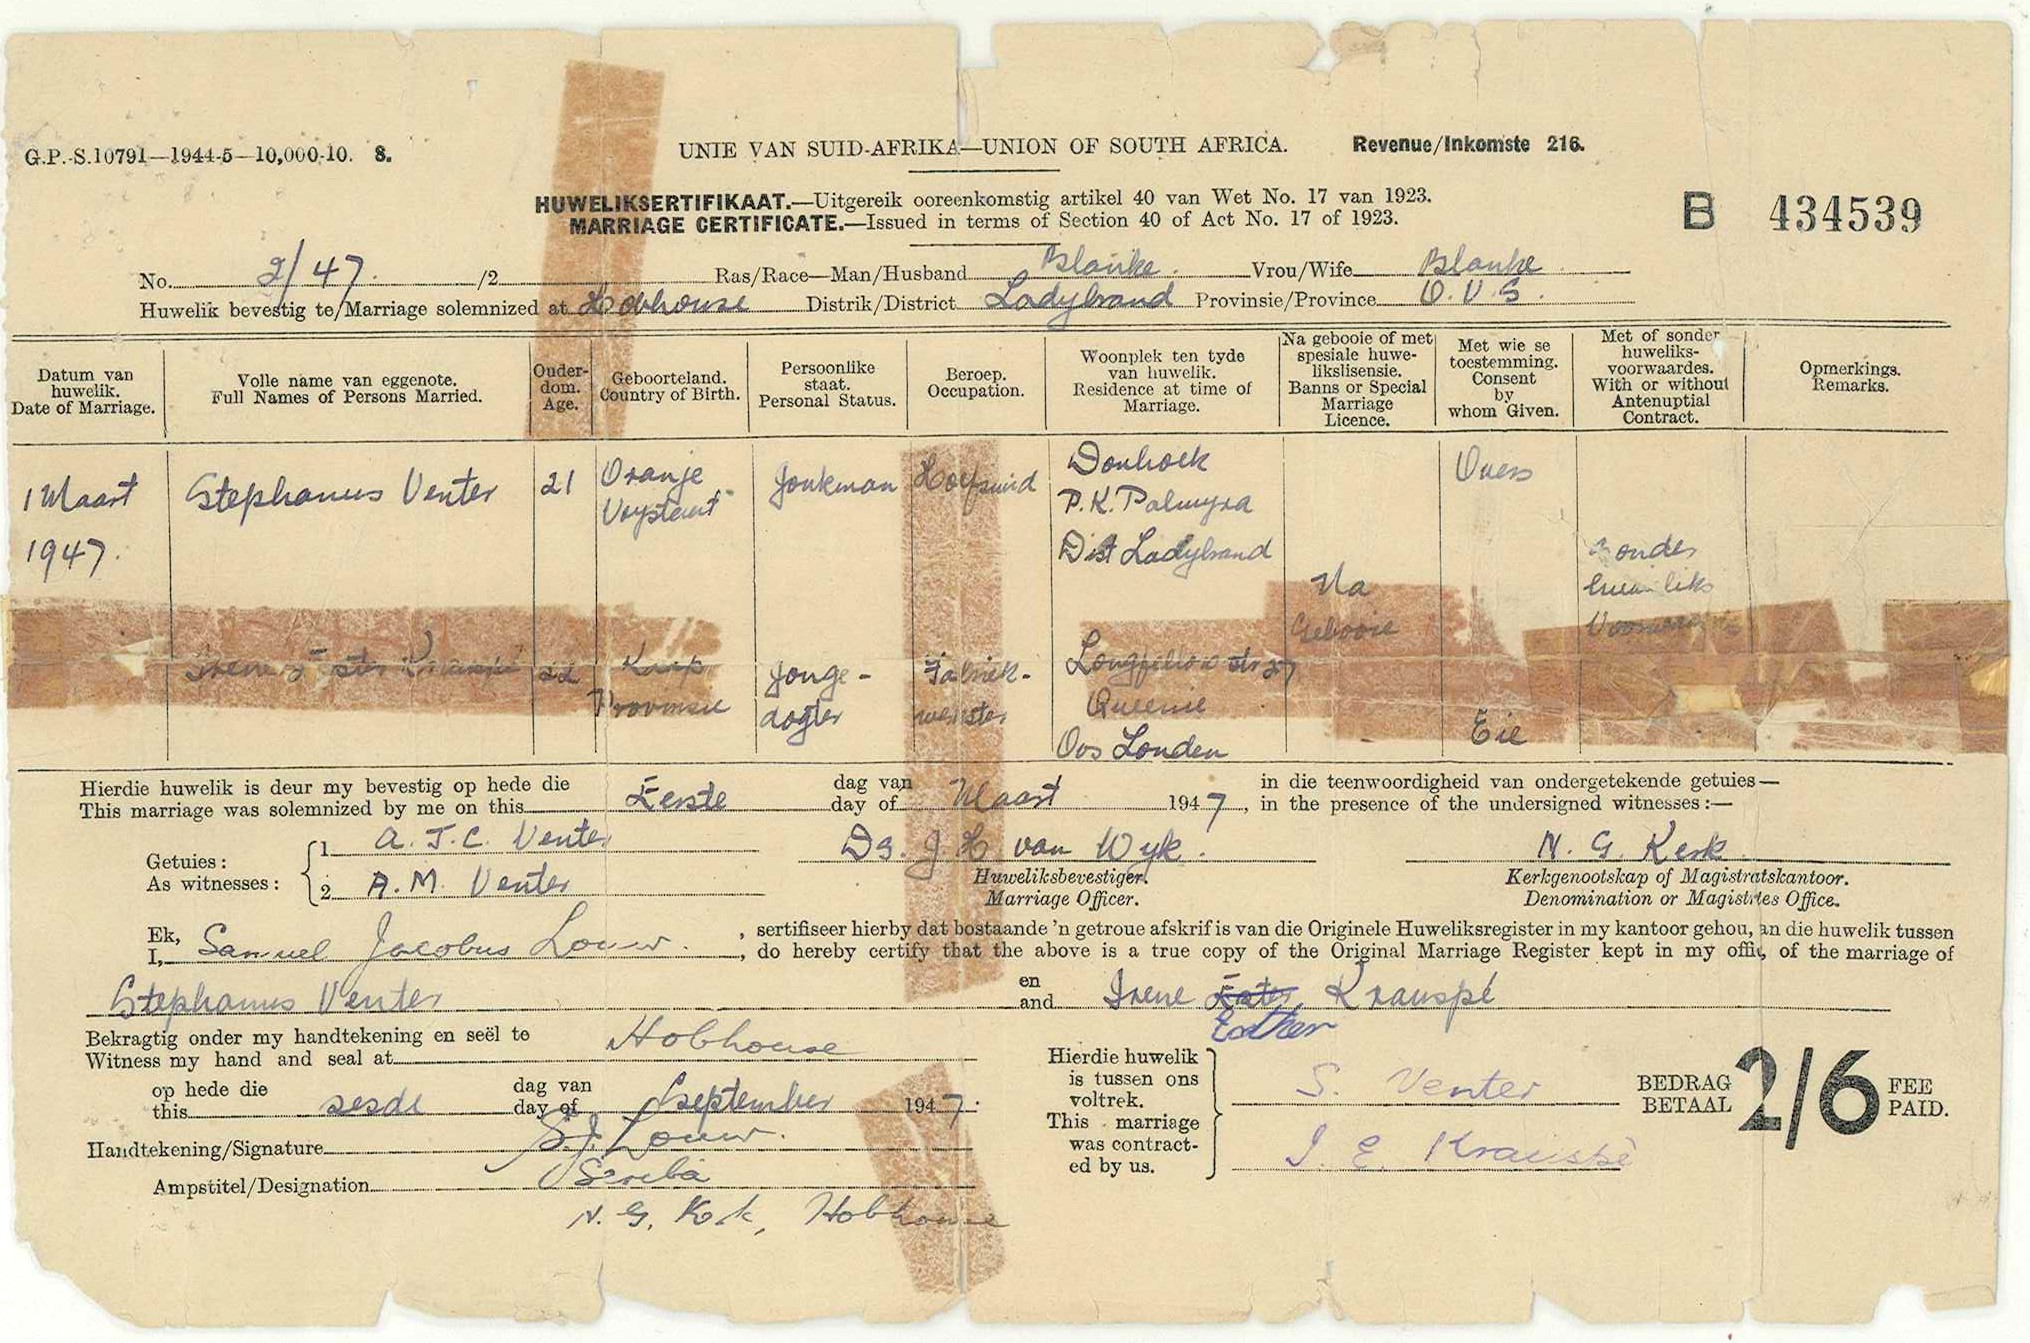 G.P.-S.10791—1944-5—10,000-10. S.
UNIE VAN SUID-AFRIKA—UNION OF SOUTH AFRICA.
Revenue/Inkomste 216.
HUWELIKSERTIFIKAAT.—Uitgereik ooreenkomstig artikel 40 van Wet No. 17 van 1923.
MARRIAGE CERTIFICATE.—Issued in terms of Section 40 of Act No. 17 of 1923.
B 434539
No. 2/47. /2 Ras/Race—Man/Husband Blanke. Vrou/Wife Blanke
Huwelik bevestig te/Marriage solemnized at Hobhouse Distrik/District Ladybrand Provinsie/Province O.V.S.
Datum van
huwelik.
Date of Marriage.
Volle name van eggenote.
Full Names of Persons Married.
Ouder-
dom.
Age.
Geboorteland.
Country of Birth.
Persoonlike
staat.
Personal Status.
Beroep.
Occupation.
Woonplek ten tyde
van huwelik.
Residence at time of
Marriage.
Na gebooie of met
spesiale huwe-
likslisensie.
Banns or Special
Marriage
Licence.
Met wie se
toestemming.
Consent
by
whom Given.
Met of sonder
huweliks-
voorwaardes.
With or without
Antenuptial
Contract.
Opmerkings.
Remarks.
1 Maart
1947.
Stephanus Venter
21
Oranje
Vrystaat
Jonkman
Hoefsmid
Donhoek
P.K. Palmyra
Dist Ladybrand
Na
Gebooie
Ouers
sonder
huweliks
Irene Ester Krauspé
Kaap
Provinsie
Jonge-
dogter
Fabriek-
werkster
Longfellow str 27
Queenie
Oos Londen
Eie
Hierdie huwelik is deur my bevestig op hede die
This marriage was solemnized by me on this Eerste
dag van
day of Maart 1947,
in die teenwoordigheid van ondergetekende getuies—
in the presence of the undersigned witnesses:—
Getuies:
As witnesses:
1. A. J.C. Venter
2. A.M. Venter
Ds. J H van Wyk.
Huweliksbevestiger.
Marriage Officer.
N. G. Kerk
Kerkgenootskap of Magistratskantoor.
Denomination or Magistrates Office.
Ek,
I, Samuel Jacobus Louw.
, sertifiseer hierby dat bostaande 'n getroue afskrif is van die Originele Huweliksregister in my kantoor gehou, an die huwelik tussen
, do hereby certify that the above is a true copy of the Original Marriage Register kept in my offi, of the marriage of
Stephanus Venter
en
and Irene Ester Krauspé
Esther
Bekragtig onder my handtekening en seël te
Witness my hand and seal at Hobhouse
op hede die
this sesde
dag van
day of September 1947.
Handtekening/Signature S.J. Louw.
Ampstitel/Designation Scriba
N. G. Kerk, Hobhouse
Hierdie huwelik
is tussen ons
voltrek.
This marriage
was contract-
ed by us.
S. Venter
I. E. Krauspé
BEDRAG
BETAAL
2/6
FEE
PAID.